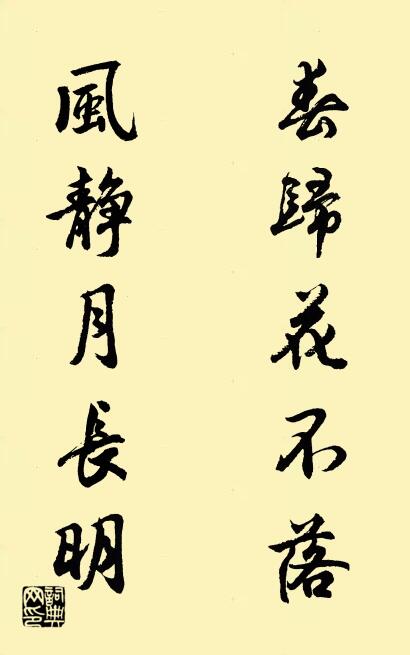 春歸花不落
風静月長明
詞典網印